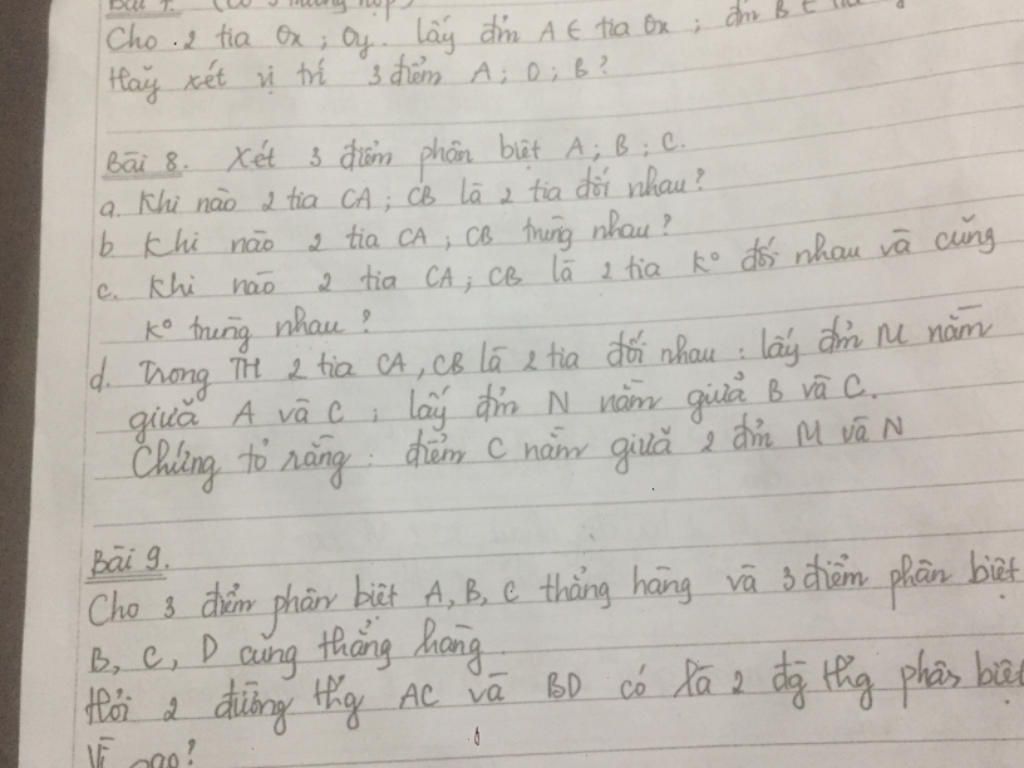 Bài 7. (Có 3 trường hợp)
Cho 2 tia Ox ; Oy. lấy đm A ∈ tia Ox ; đm B ∈ tia
Hãy xét vị trí 3 điểm A ; O ; B ?
Bài 8. Xét 3 điểm phân biệt A ; B ; C.
a. Khi nào 2 tia CA ; CB là 2 tia đối nhau ?
b. Khi nào 2 tia CA ; CB trùng nhau ?
c. Khi nào 2 tia CA ; CB là 2 tia K° đối nhau và cũng
K° trùng nhau ?
d. Trong TH 2 tia CA , CB là 2 tia đối nhau : lấy đm M nằm
giữa A và C ; lấy đm N nằm giữa B và C.
Chứng tỏ rằng : điểm C nằm giữa 2 đm M và N
Bài 9.
Cho 3 điểm phân biệt A, B, C thẳng hàng và 3 điểm phân biệt
B, C, D cũng thẳng hàng.
Hỏi 2 đường thg AC và BD có là 2 đg thg phân biệt
Vì sao ?